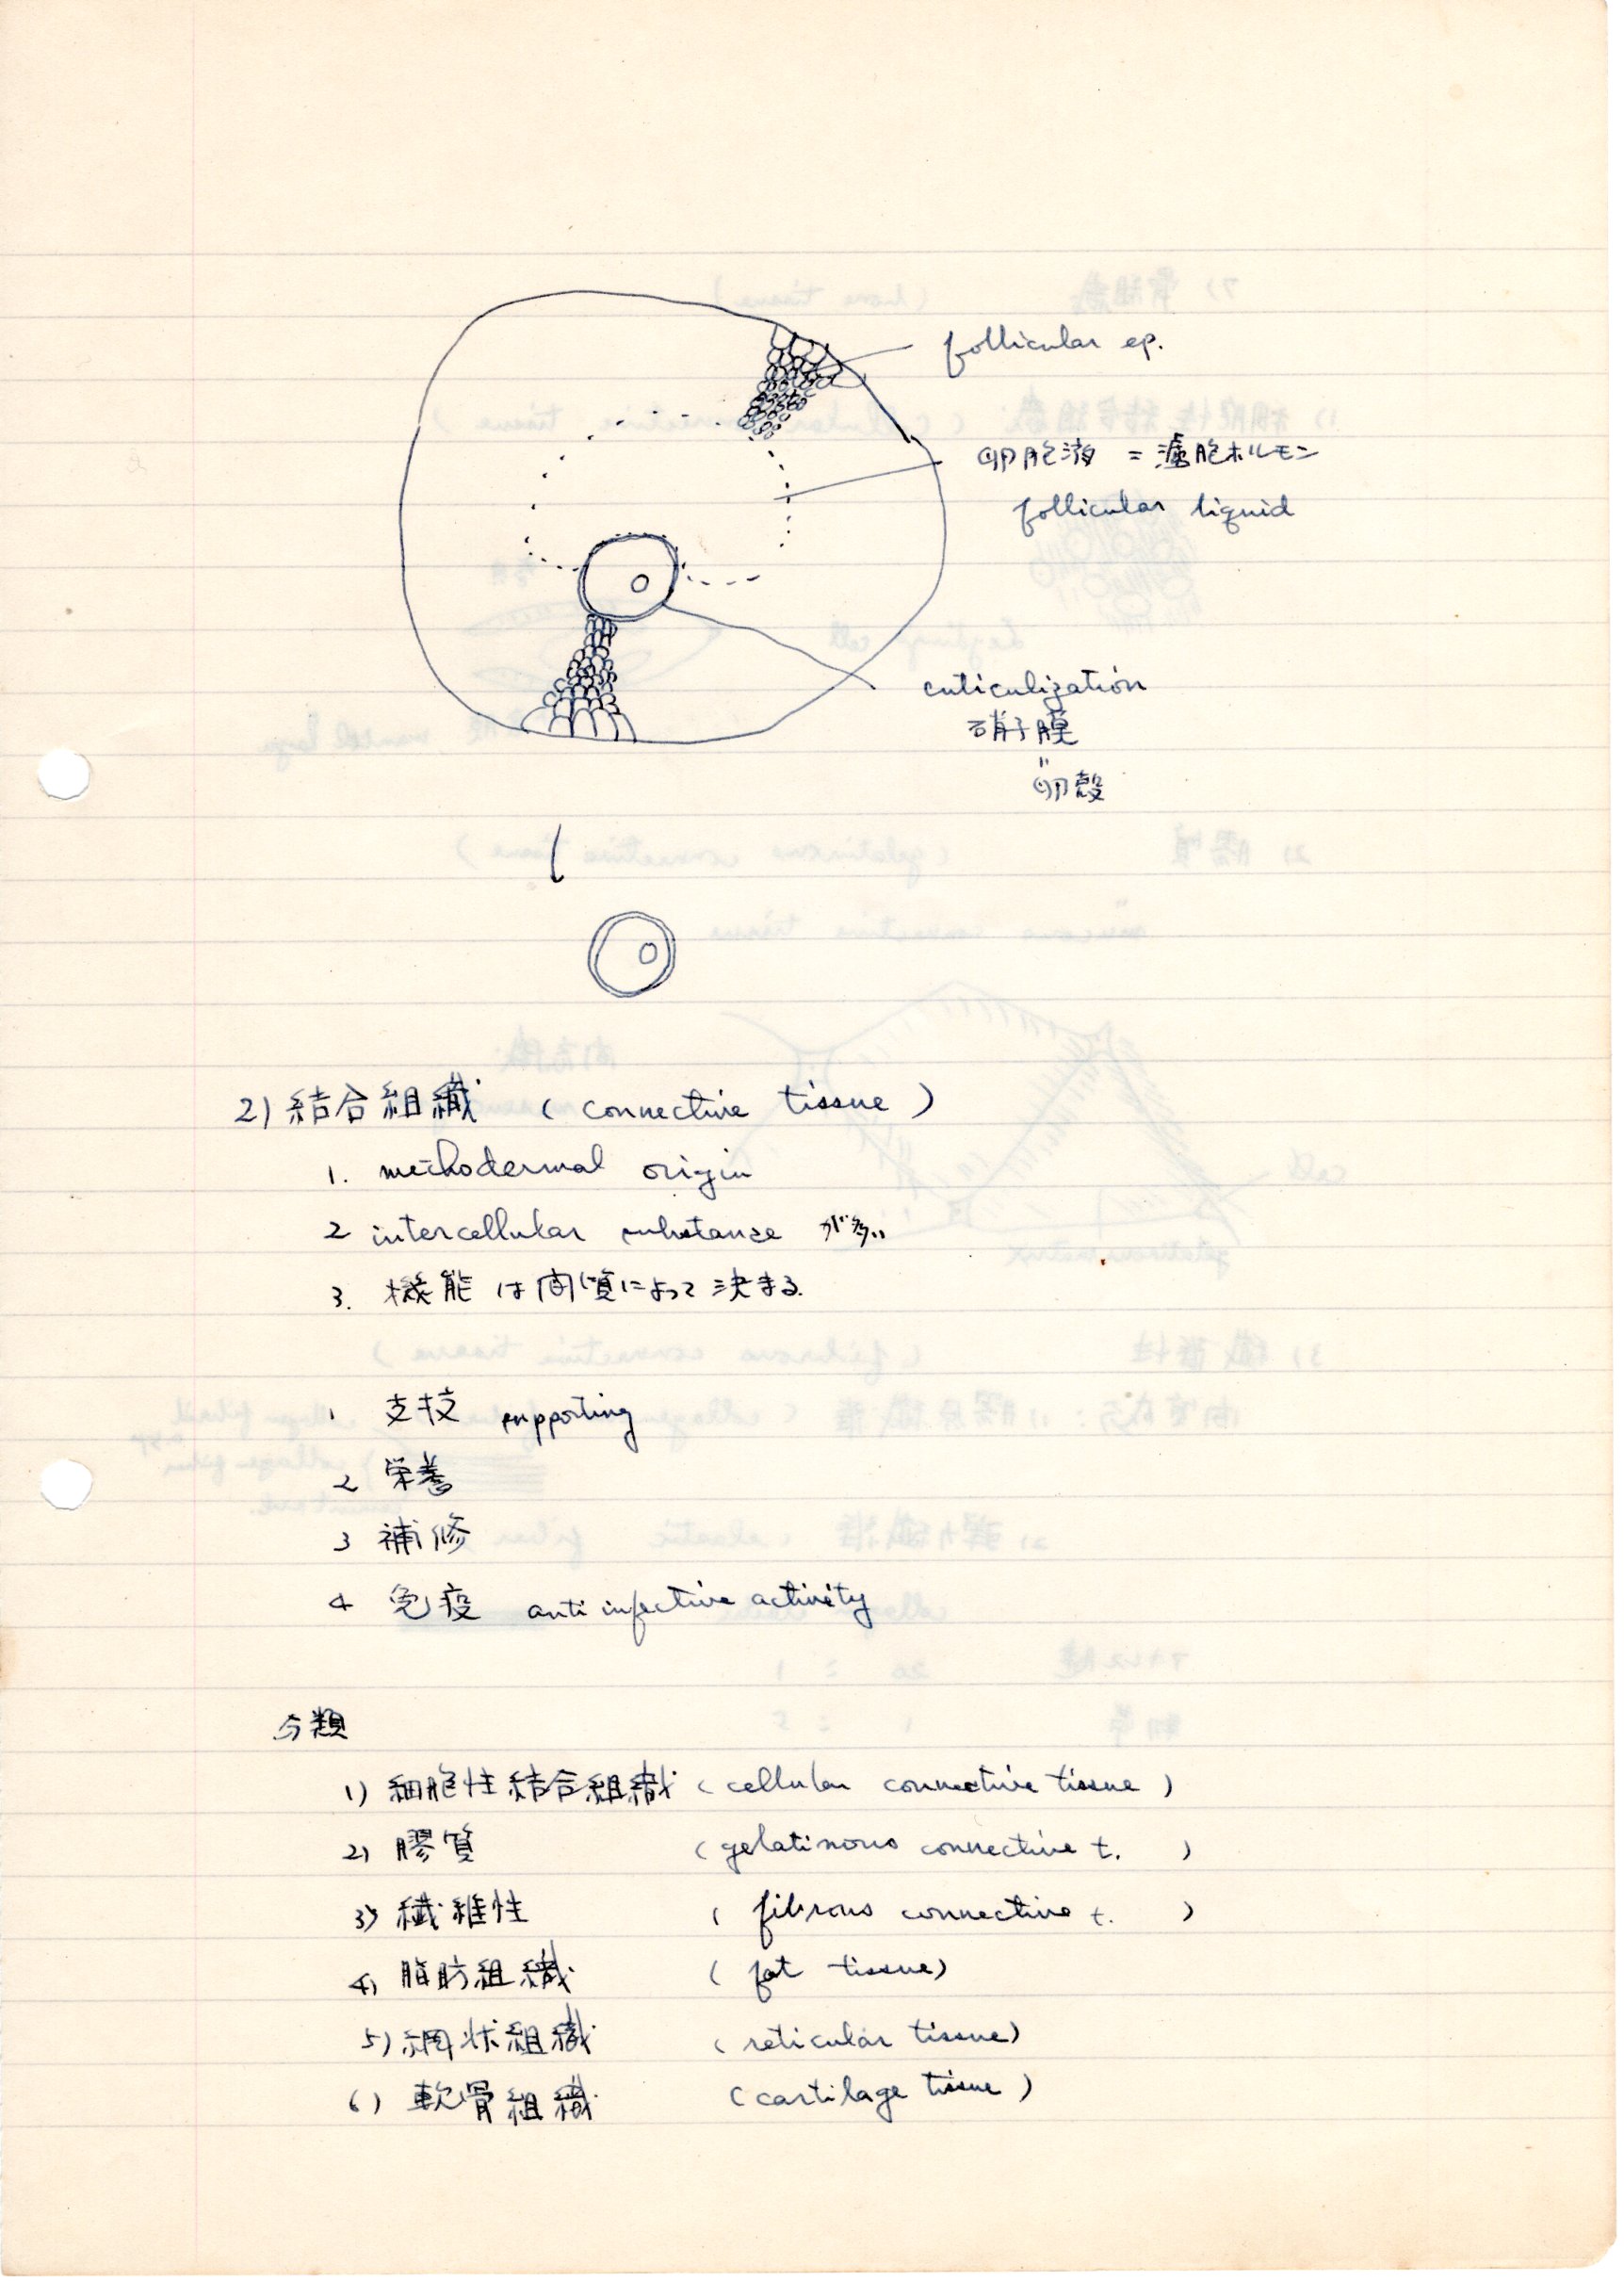 follicular ep.
卵胞液 = 濾胞ホルモン
follicular liquid
cuticulization
硝子膜
〃
卵殻
2) 結合組織 ( connective tissue )
1. methodermal origin
2 intercellular substance が多い
3. 機能は間質によって決まる.
1 支持 supporting
2 栄養
3 補修
4 免疫 anti infective activity
分類
1) 細胞性結合組織 ( cellular connective tissue )
2) 膠質 ( gelatinous connective t. )
3) 繊維性 ( fibrous connective t. )
4) 脂肪組織 ( fat tissue )
5) 網状組織 ( reticular tissue )
6) 軟骨組織 ( cartilage tissue )